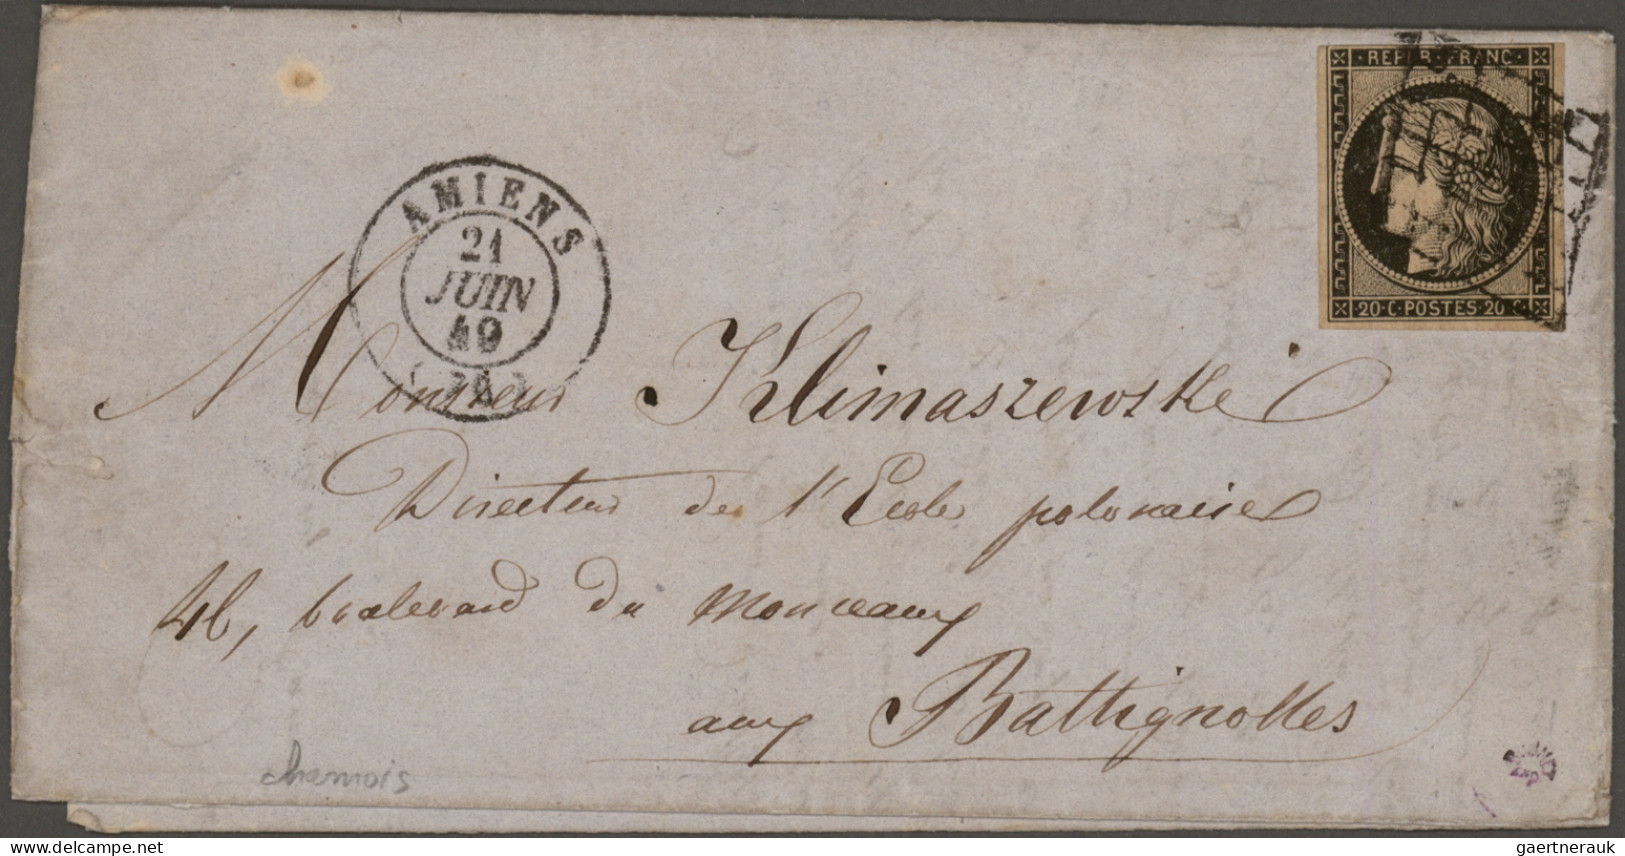 REPUB. FRANC.
20 · C · POSTES · 20 · C
AMIENS
21
JUIN
49
Monsieur Klimaszewski
Directeur de l'Ecole polonaise
46, boulevard du Monceaux
aux Battignolles
chamois
delcampe.net
gaertnerauk